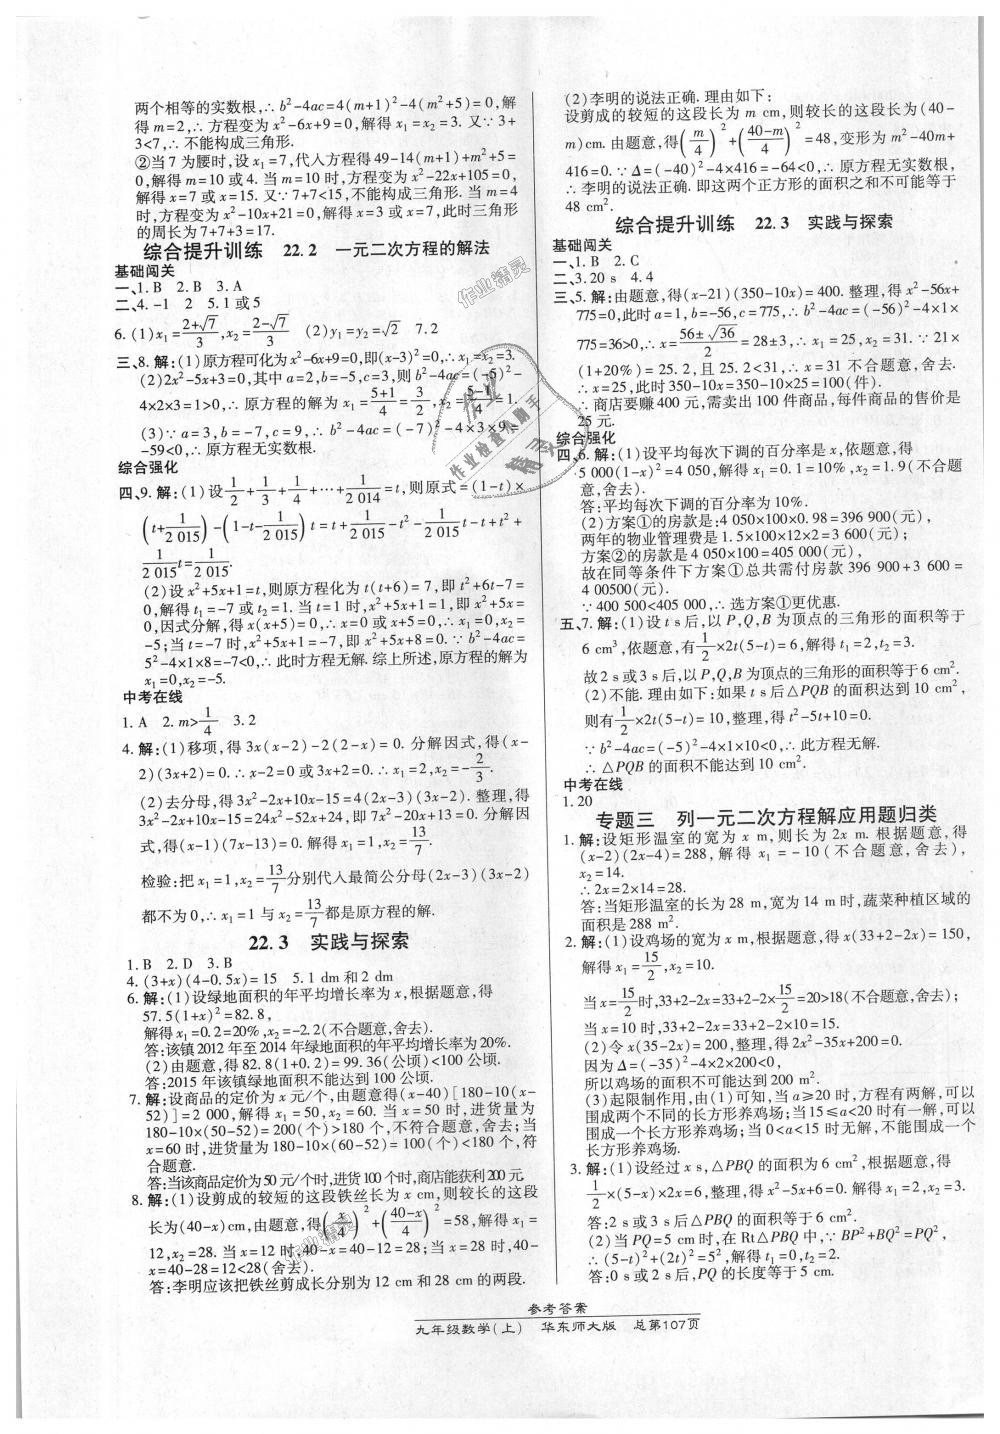 两个相等的实数根,∴ b²-4ac=4(m+1)²-4(m²+5)=0,解
得 m=2,∴ 方程变为 x²-6x+9=0,解得 x₁=x₂=3. 又∵3+
3<7,∴不能构成三角形.
②当 7 为腰时,设 x₁=7,代入方程得 49-14(m+1)+m²+5=
0,解得 m=10 或 4. 当 m=10 时,方程变为 x²-22x+105=0,
解得 x=7 或 x=15. 又∵7+7<15,不能构成三角形. 当 m=4
时,方程变为 x²-10x+21=0,解得 x=3 或 x=7,此时三角形
的周长为 7+7+3=17.
综合提升训练 22.2 一元二次方程的解法
基础闯关
一、1. B 2. B 3. A
二、4. -1 2 5. 1 或 5
6. (1)x₁=(2+√7)/3,x₂=(2-√7)/3 (2)y₁=y₂=√2 7. 2
三、8. 解:(1)原方程可化为 x²-6x+9=0,即(x-3)²=0,∴x₁=x₂=3.
(2)2x²-5x+3=0,其中 a=2,b=-5,c=3,则 b²-4ac=(-5)²-
4×2×3=1>0,∴ 原方程的解为 x₁=(5+1)/4=3/2,x₂=(5-1)/4=1.
(3)∵a=3,b=-7,c=9,∴b²-4ac=(-7)²-4×3×9=
-59<0,∴ 原方程无实数根.
综合强化
四、9. 解:(1)设1/2+1/3+1/4+…+1/2 014=t,则原式=(1-t)×
(t+1/2 015)-(1-t-1/2 015)t=t+1/2 015-t²-1/2 015t-t+t²+
1/2 015t=1/2 015.
(2)设 x²+5x+1=t,则原方程化为 t(t+6)=7,即 t²+6t-7=
0,解得 t₁=-7 或 t₂=1. 当 t=1 时,x²+5x+1=1,即 x²+5x=
0,因式分解,得 x(x+5)=0,∴x=0 或 x+5=0,∴x₁=0,x₂=
-5;当 t=-7 时,x²+5x+1=-7,即 x²+5x+8=0. ∵b²-4ac=
5²-4×1×8=-7<0,∴ 此时方程无解. 综上所述,原方程的解为
x₁=0,x₂=-5.
中考在线
1. A 2. m>1/4 3. 2
4. 解:(1)移项,得 3x(x-2)-2(2-x)=0. 分解因式,得(x-
2)(3x+2)=0. ∴x-2=0 或 3x+2=0. ∴x₁=2,x₂=-2/3.
(2)去分母,得 3x²-2x+10x-15=4(2x-3)(3x-2). 整理,得
3x²-2x+10x-15=24x²-52x+24,即 7x²-20x+13=0. 分解因
式,得(x-1)(7x-13)=0. 解得 x₁=1,x₂=13/7.
检验:把 x₁=1,x₂=13/7分别代入最简公分母(2x-3)(3x-2)
都不为 0,∴x₁=1 与 x₂=13/7都是原方程的解.
22.3 实践与探索
1. B 2. D 3. B
4. (3+x)(4-0.5x)=15 5. 1 dm 和 2 dm
6. 解:(1)设绿地面积的年平均增长率为 x,根据题意,得
57.5(1+x)²=82.8,
解得 x₁=0.2=20%,x₂=-2.2(不合题意,舍去).
答:该镇 2012 年至 2014 年绿地面积的年平均增长率为 20%.
(2)由题意,得 82.8(1+0.2)=99.36(公顷)<100 公顷.
答:2015 年该镇绿地面积不能达到 100 公顷.
7. 解:设商品的定价为 x 元/个,由题意得(x-40)[180-10(x-
52)]=2 000,解得 x₁=50,x₂=60. 当 x=50 时,进货量为
180-10(50-52)=200(个)>180 个,不符合题意,舍去;当
x=60 时,进货量为 180-10×(60-52)=100(个)<180 个,符
合题意.
答:当该商品定价为 50 元/个时,进货 100 个时,商店能获利 200 元.
8. 解:(1)设剪成的较短的这段铁丝长为 x cm,则较长的这段
长为(40-x)cm,由题意,得(x/4)²+((40-x)/4)²=58,解得 x₁=
12,x₂=28. 当 x=12 时,40-x=40-12=28;当 x=28 时,40-
x=40-28=12<28(舍去).
答:李明应该把铁丝剪成长分别为 12 cm 和 28 cm 的两段.
(2)李明的说法正确. 理由如下:
设剪成的较短的这段长为 m cm,则较长的这段长为(40-
m)cm. 由题意,得(m/4)²+((40-m)/4)²=48,变形为 m²-40m+
416=0. ∵Δ=(-40)²-4×416=-64<0,∴ 原方程无实数根,
∴ 李明的说法正确. 即这两个正方形的面积之和不可能等于
48 cm².
综合提升训练 22.3 实践与探索
基础闯关
一、1. B 2. C
二、3. 20 s 4. 4
三、5. 解:由题意,得(x-21)(350-10x)=400. 整理,得 x²-56x+
775=0,此时 a=1,b=-56,c=775,∴b²-4ac=(-56)²-4×1×
775=36>0,∴x=(56±√36)/2=28±3,∴x₁=25,x₂=31. ∵21×
(1+20%)=25.2,且 25.2<31,∴x=31 不合题意,舍去.
∴x=25,此时 350-10x=350-10×25=100(件).
∴商店要赚 400 元,需卖出 100 件商品,每件商品的售价是
25 元.
综合强化
四、6. 解:(1)设平均每次下调的百分率是 x,依题意,得
5 000(1-x)²=4 050,解得 x₁=0.1=10%,x₂=1.9(不合题
意,舍去).
答:平均每次下调的百分率为 10%.
(2)方案①的房款是:4 050×100×0.98=396 900(元),
两年的物业管理费是 1.5×100×12×2=3 600(元);
方案②的房款是 4 050×100=405 000(元),
故在同等条件下方案①总共需付房款 396 900+3 600=
4 00500(元).
∵400 500<405 000,∴ 选方案①更优惠.
五、7. 解:(1)设 t s 后,以 P,Q,B 为顶点的三角形的面积等于
6 cm³,依题意,有1/2×2t(5-t)=6,解得 t₁=2,t₂=3.
故 2 s 或 3 s 后,以 P,Q,B 为顶点的三角形的面积等于 6 cm².
(2)不能. 理由如下:如果 t s 后△PQB 的面积达到 10 cm²,
则有1/2×2t(5-t)=10,整理,得 t²-5t+10=0.
∵b²-4ac=(-5)²-4×1×10<0,∴ 此方程无解.
∴△PQB 的面积不能达到 10 cm².
中考在线
1. 20
专题三 列一元二次方程解应用题归类
1. 解:设矩形温室的宽为 x m,则长为 2x m. 根据题意,得
(x-2)(2x-4)=288,解得 x₁=-10(不合题意,舍去),
x₂=14.
∴2x=2×14=28.
答:当矩形温室的长为 28 m,宽为 14 m 时,蔬菜种植区域的
面积是 288 m².
2. 解:(1)设鸡场的宽为 x m,根据题意,得 x(33+2-2x)=150,
解得 x₁=15/2,x₂=10.
当 x=15/2时,33+2-2x=33+2-2×15/2=20>18(不合题意,舍去);
当 x=10 时,33+2-2x=33+2-2×10=15.
(2)令 x(35-2x)=200,整理,得 2x²-35x+200=0.
因为 Δ=(-35)²-4×2×200<0,
所以鸡场的面积不可能达到 200 m².
(3)起限制作用,由(1)可知,当 a≥20 时,方程有两解,可以
围成两个不同的长方形养鸡场;当15≤a<20 时有一解,可以
围成一个长方形养鸡场;当 0<a<15 时无解,不能围成一个
长方形养鸡场.
3. 解:(1)设经过 x s,△PBQ 的面积为 6 cm²,根据题意,得
1/2×(5-x)×2x=6,整理,得 x²-5x+6=0. 解得 x₁=2,x₂=3.
答:2 s 或 3 s 后△PBQ 的面积等于 6 cm².
(2)当 PQ=5 cm 时,在 Rt△PBQ 中,∵BP²+BQ²=PQ²,
∴(5-t)²+(2t)²=5²,解得 t₁=0,t₂=2.
答:0 s 或 2 s 后,PQ 的长度等于 5 cm.
参考答案
九年级数学(上) 华东师大版 总第107页
作业精灵
作业检查小助手
精灵
作业精灵